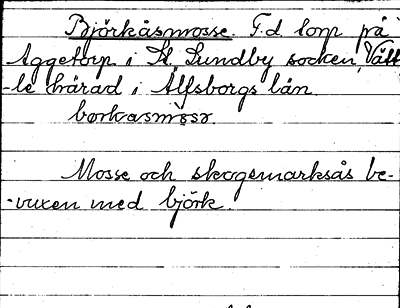 Björkåsmosse. F.d torp på
Aggetorp i St. Lundby socken, Vätt-
-le härad i Älfsborgs län.
børkasmòsə.
Mosse och skogsmarksås be-
-vuxen med björk.